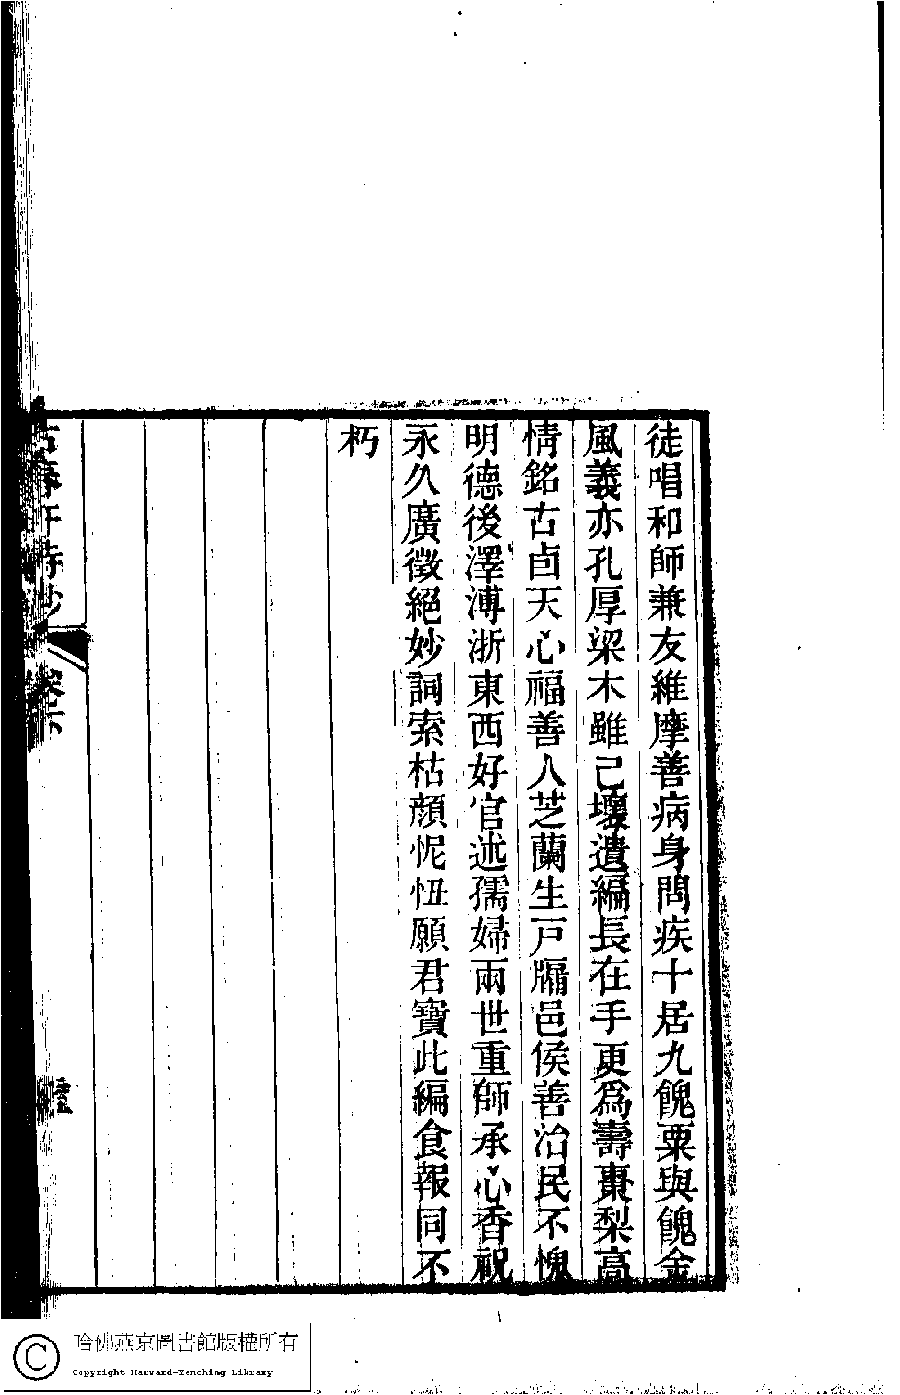 徒唱和師兼友維摩善病身問疾十居九餽粟與餽金
風義亦孔厚梁木雖已壞遺編長在手更為壽棗梨高
情銘古卣天心福善人芝蘭生戸牖邑侯善治民不愧
明德後澤溥浙東西好官述孺婦兩世重師承心香祝
永久廣徵絕妙詞索枯顏怩忸願君寶此編食報同不
朽
哈佛燕京圖書館版權所有
Copyright Harvard-Yenching Library